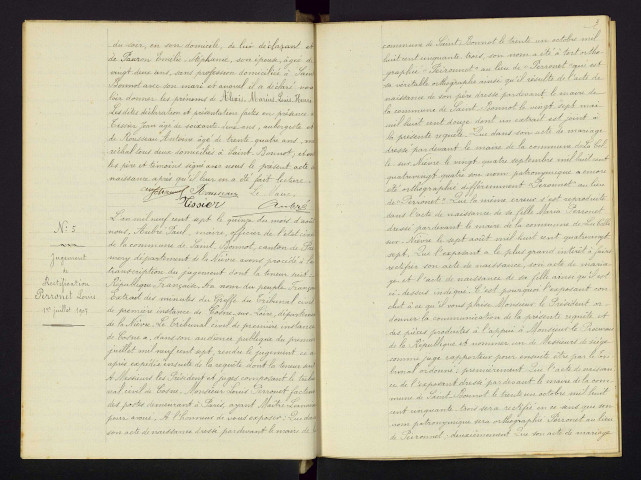 du soir, en son domicile, de lui déclarant et
de Pauron Emilie Stéphanie, son épouse, âgée de
vingt deux ans, sans profession domiciliée à Saint
Bonnot avec son mari et auquel il a déclaré vou-
loir donner les prénoms de Marius Louis Henri
Les dites déclaration et présentation faites en présence de
Tissier Jean âgé de soixante ans, aubergiste et
de Rousseau Antoine âgé de trente quatre ans, ma-
réchal tous deux domiciliés à Saint Bonnot, et ont
les père et témoins signé avec nous le présent acte de
naissance après qu'il leur en a été fait lecture.
Rousseau Le Maire,
Tissier André
N° 5
Jugement
de
Rectification
Perronet Louis
1er juillet 1907
L'an mil neuf cent sept le quinze du mois d'août
nous, André Paul, maire, officier de l'état civil
de la commune de Saint Bonnot, canton de Pré-
mery département de la Nièvre avons procédé à la
transcription du jugement dont la teneur suit
République Française. Au nom du peuple Français
Extrait des minutes du Greffe du Tribunal civil
de première instance de Cosne sur Loire, département
de la Nièvre. Le Tribunal civil de première instance
de Cosne a, dans son audience publique du premier
juillet mil neuf cent sept, rendu le jugement
après expédition ensuite de la requête dont la teneur suit
A Messieurs les Président et juges composant le tribu-
nal civil de Cosne. Monsieur Louis Perronet facteur
des postes demeurant à Paris, ayant Maître
pour avoué. A l'honneur de vous exposer: Que dans
son acte de naissance dressé par devant le maire de la
commune de Saint Bonnot le trente un octobre mil
huit cent cinquante trois, son nom a été à tort ortho-
graphié "Peironnet" au lieu de "Perronet" qui est
sa véritable orthographe ainsi qu'il résulte de l'acte de
naissance de son père dressé par devant le maire de
la commune de Saint Bonnot le vingt sept mai
mil huit cent douze dont un extrait est joint à
la présente requête. Que dans son acte de mariage
dressé par devant le maire de la commune de la Cel-
le sur Nièvre le vingt quatre septembre mil huit cent
quatre vingt quatre son nom patronymique a encore
été orthographié différemment "Perronnet" au lieu
de "Perronet". Que la même erreur s'est reproduite
dans l'acte de naissance de sa fille Maria Perronet
dressé par devant le maire de la commune de La Celle
sur Nièvre le sept août mil huit cent quatre vingt
sept. Que l'exposant a le plus grand intérêt à faire
rectifier son acte de naissance, son acte de maria-
ge et l'acte de naissance de sa fille ainsi qu'il est
ci dessus indiqué. C'est pourquoi l'exposant con-
clut à ce qu'il vous plaise Monsieur le Président or-
donner la communication de la présente requête et
des pièces produites à l'appui à Monsieur le Procureur
de la République et nommer un de Messieurs les juges
comme juge rapporteur pour ensuite être par le Tri-
bunal ordonné: premièrement Que l'acte de naissan-
ce de l'exposant dressé par devant le maire de la com-
mune de Saint Bonnot le trente un octobre mil huit
cent cinquante trois sera rectifié en ce sens que son
nom patronymique sera orthographié Perronet au lieu
de Peironnet; deuxièmement Que son acte de mariage